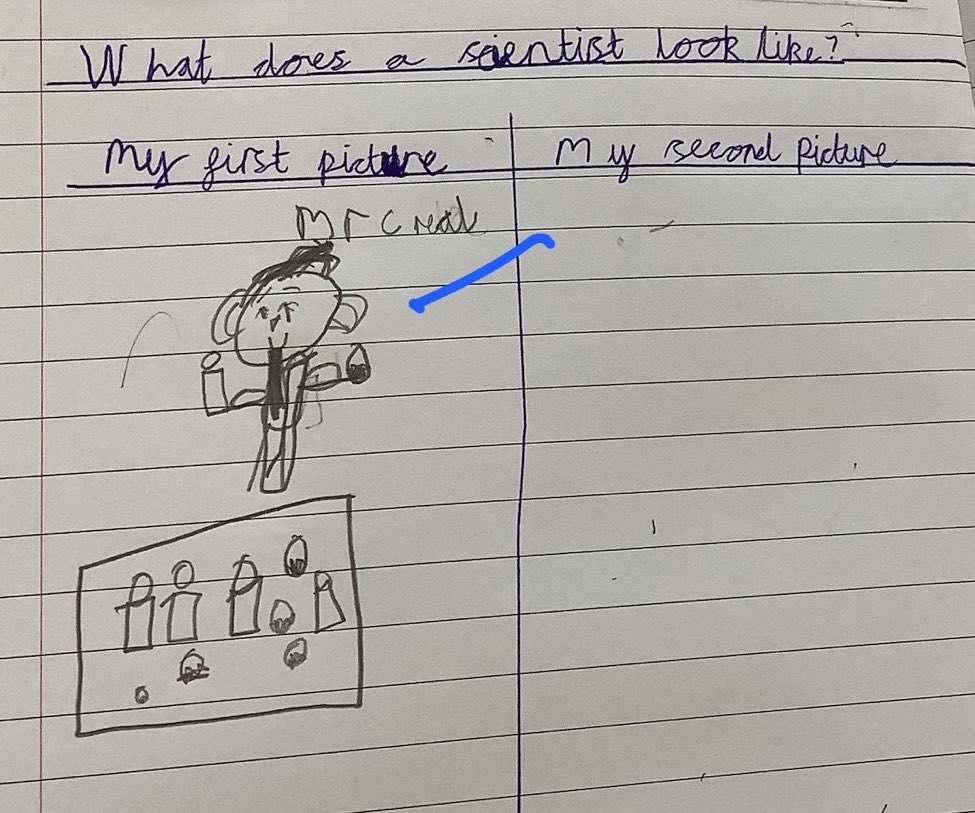 What does a scientist look like?
My first picture
My second picture
Mr